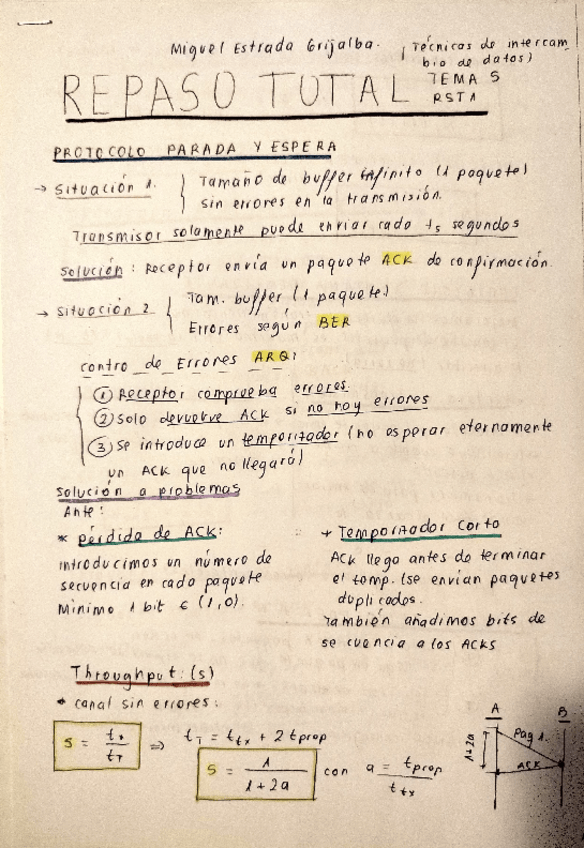 Miguel Estrada Grijalba.
(Técnicas de intercam
bio de datos)
REPASO TOTAL
TEMA 5
RSTA
PROTOCOLO PARADA Y ESPERA
→ Situación 1. Tamaño de buffer infinito (1 paquete)
sin errores en la transmisión.
Transmisor solamente puede enviar cada ts segundos
Solución: Receptor envía un paquete ACK de confirmación.
→ Situación 2 Tam. buffer (1 paquete)
Errores según BER
contro de Errores ARQ:
① Receptor comprueba errores
② Solo devuelve ACK si no hay errores
③ Se introduce un temporizador (no esperar eternamente
un ACK que no llegará)
Solución a problemas
Ante:
* pérdida de ACK:
introducimos un número de
secuencia en cada paquete
Mínimo 1 bit ∈ (1,0).
* Temporizador corto
ACK llega antes de terminar
el temp. (se envían paquetes
duplicados.
También añadimos bits de
secuencia a los ACKs
Throughput: (s)
* canal sin errores:
S = tx / tT ⇒ tT = ttx + 2 tprop
S = 1 / 1+2a con a = tprop / ttx
A B
1+2a
Paq 1.
ACK